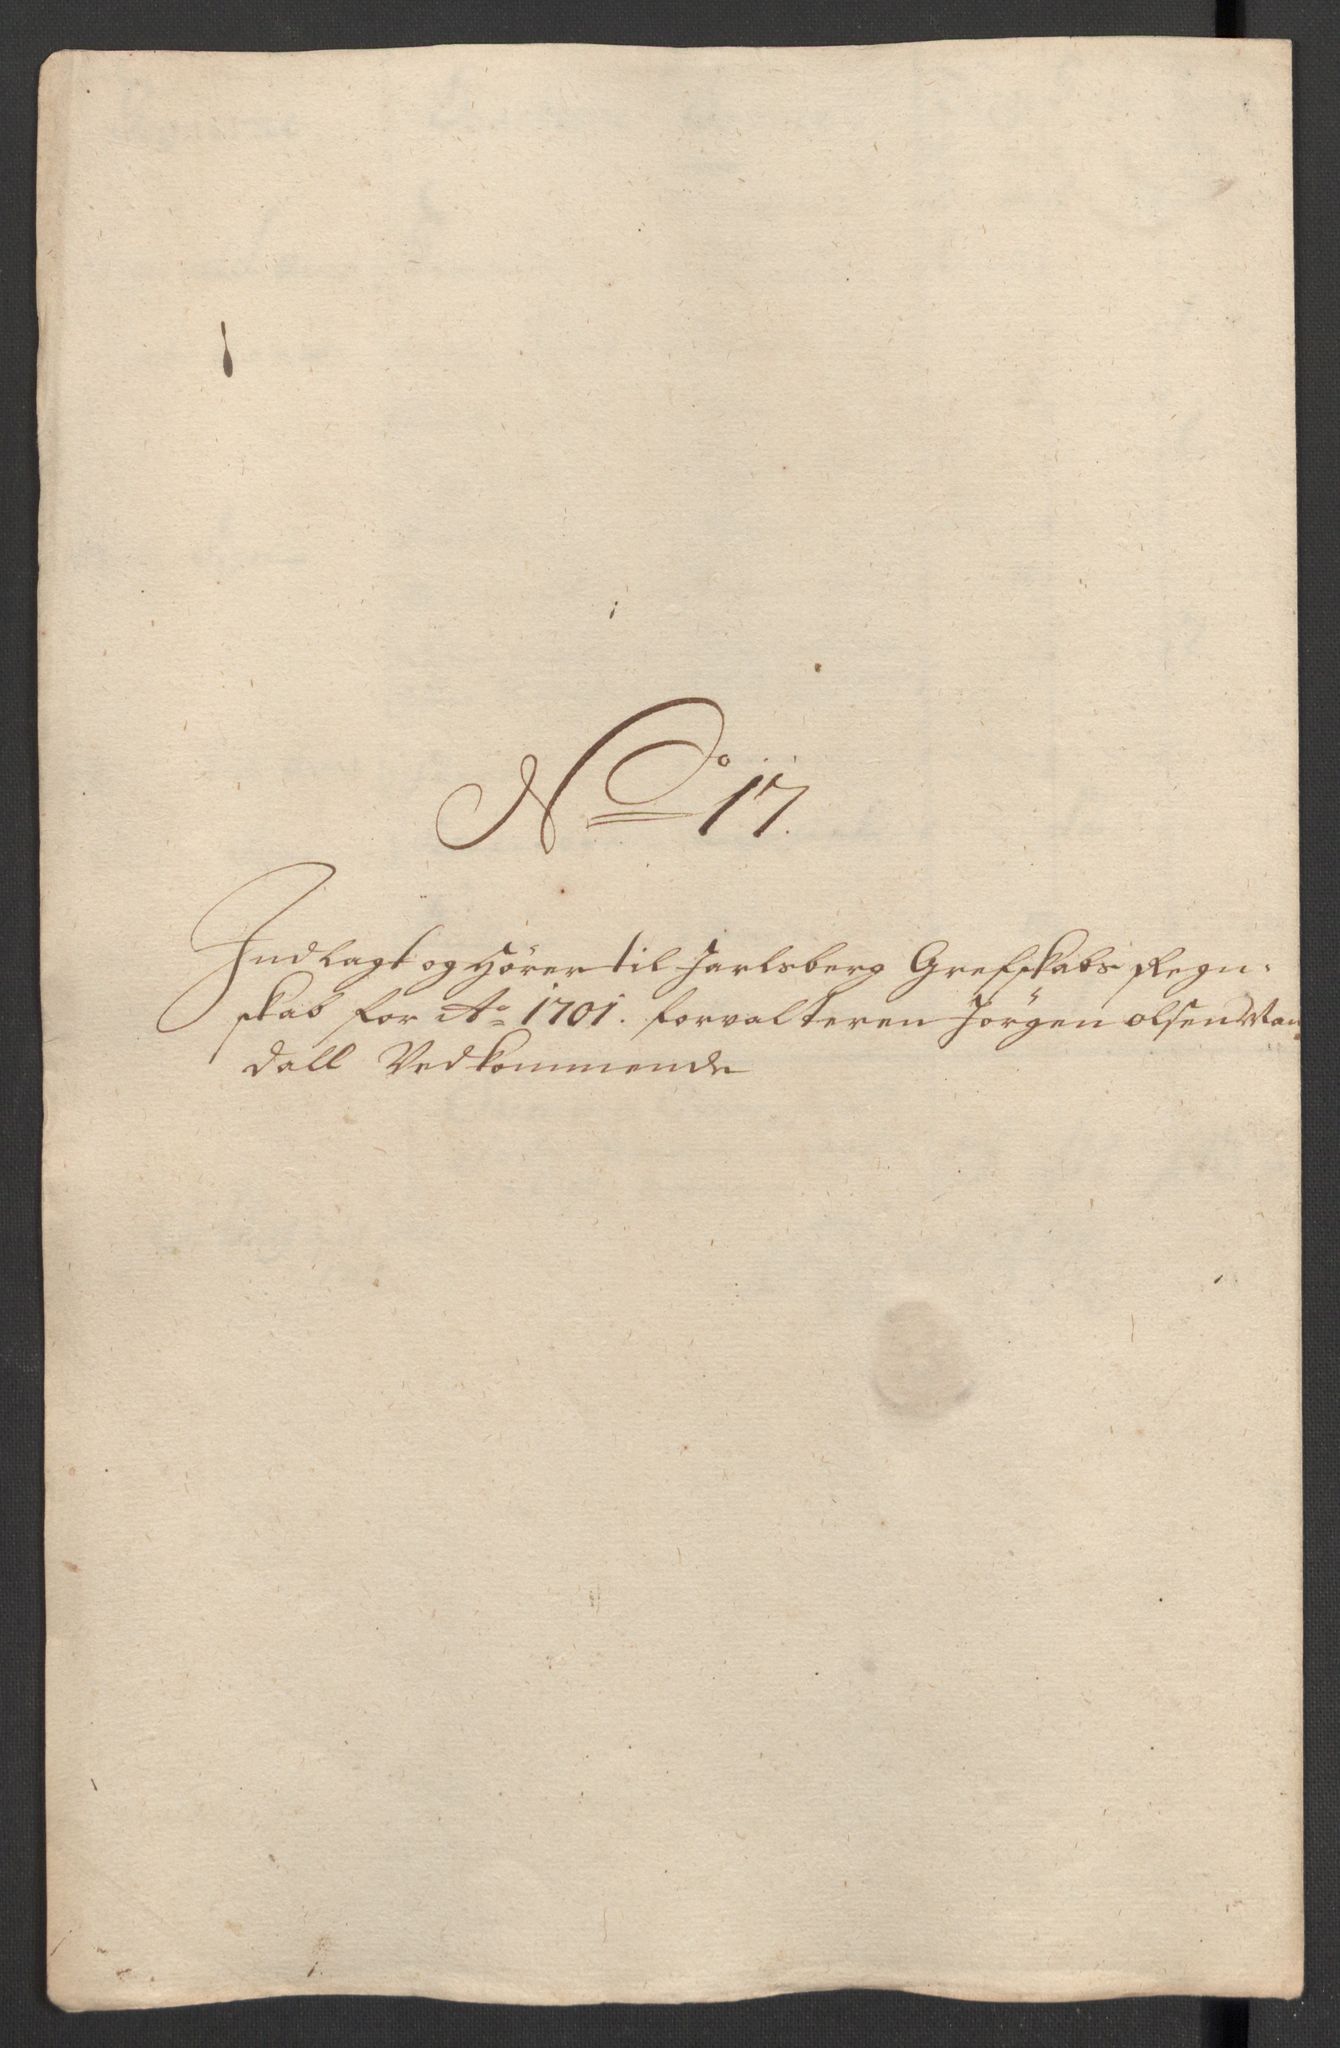 No 17.
Indlagt og Hörer til Jarlsberg Grefskabs Regn-
skab for Ao 1701. forvalteren Jörgen olsen Man
dall Vedkommende